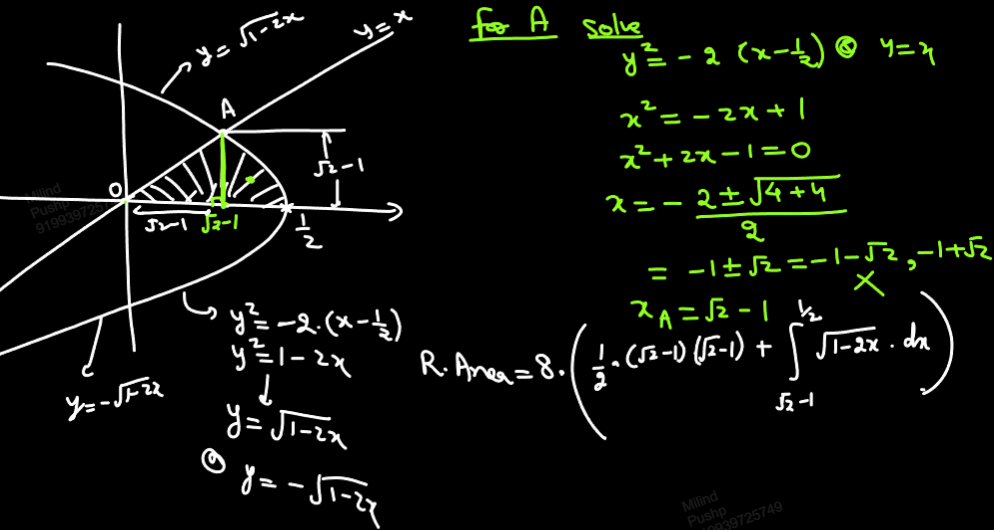 y = √1-2x
y = x
A
√2-1
O
√2-1
√2-1
1/2
y² = -2.(x-1/2)
y² = 1-2x
y = √1-2x
y = -√1-2x
y = -√1-2x
for A solve
y² = -2 (x-1/2) & y = x
x² = -2x + 1
x² + 2x - 1 = 0
x = - 2 ± √4+4 / 2
= -1 ± √2 = -1-√2, -1+√2
X
x_A = √2 - 1
R. Area = 8. (1/2 . (√2-1) (√2-1) + ∫_{√2-1}^{1/2} √1-2x . dx)
Milind
Pushp
919939725749
Milind
Pushp
919939725749